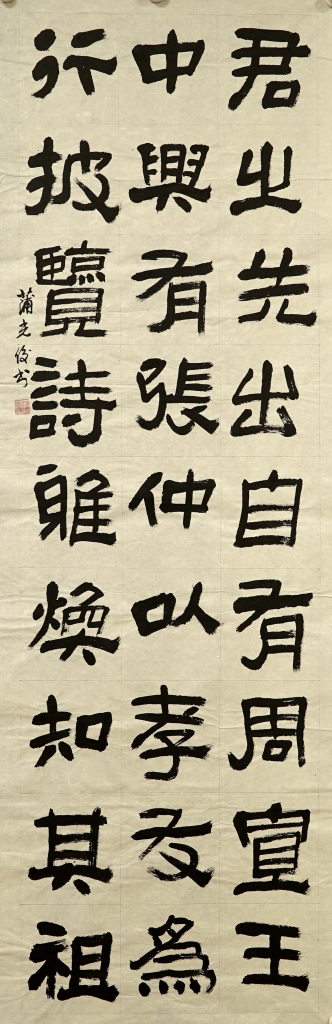 君之先出自有周宣王
中興有張仲以孝友為
行披覽詩雅煥知其祖
蒲光俊书